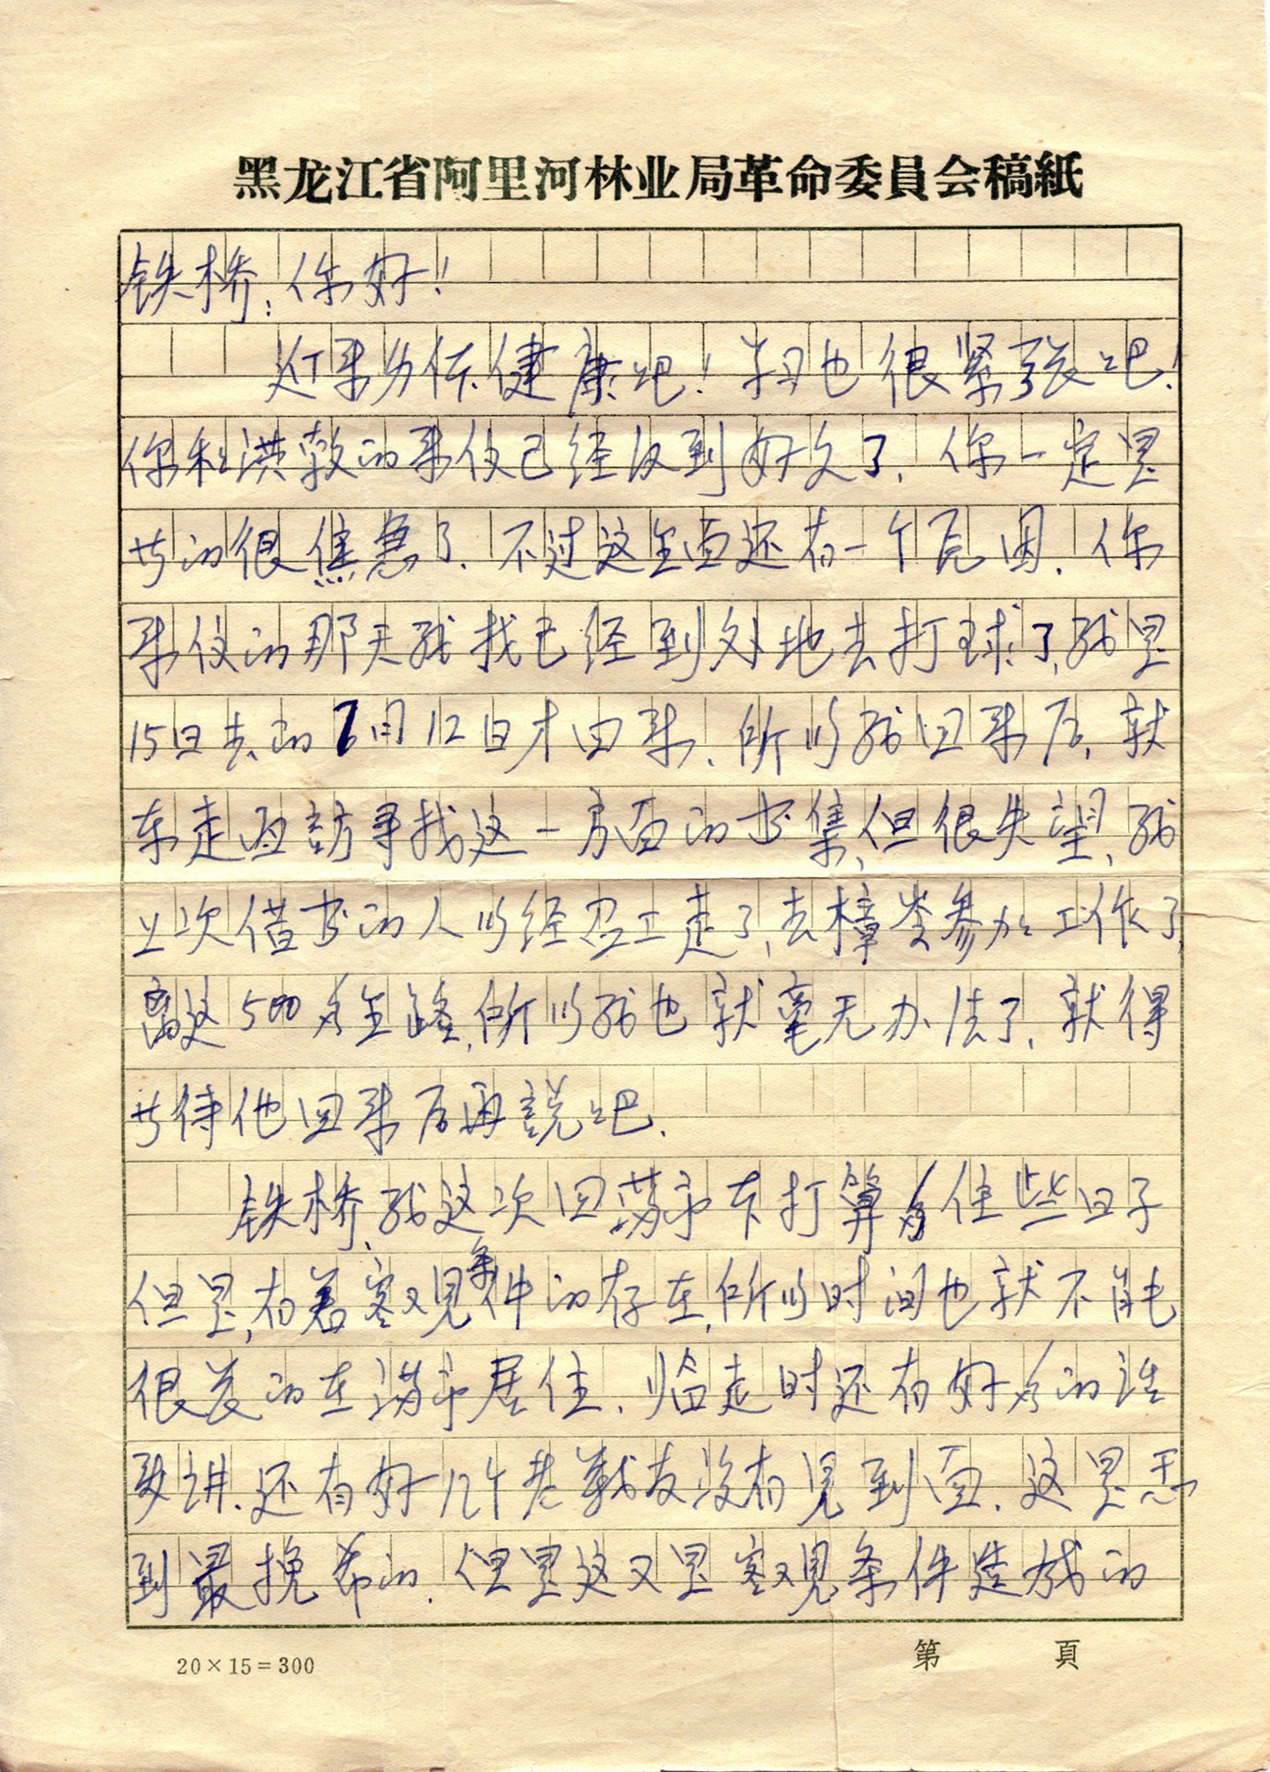 黑龙江省阿里河林业局革命委員会稿紙
铁桥：你好！
近来身体健康吧！学习也很紧张吧！
你和洪敦的来信已经收到好久了．你一定是
等的很焦急了．不过这里面还有一个原因．你
来信的那天我已经到外地去打球了，我是
15日去的7月12日才回来．所以我回来后，就
东走西訪寻找这一方面的书集，但很失望，我
上次借书的人以经招工走了，去樟岺参加工作了
离这500多里路，所以我也就毫无办法了，就得
等待他回来后再說吧．
铁桥，我这次回满市本打算多住些日子
但是，有着客观条件的存在，所以时间也就不能
很长的在满市居住．临走时还有好多的话
要讲．还有好几个老战友没有见到面．这是感
到最挽惜的．但是这又是客观条件造成的
20×15＝300
第　　頁